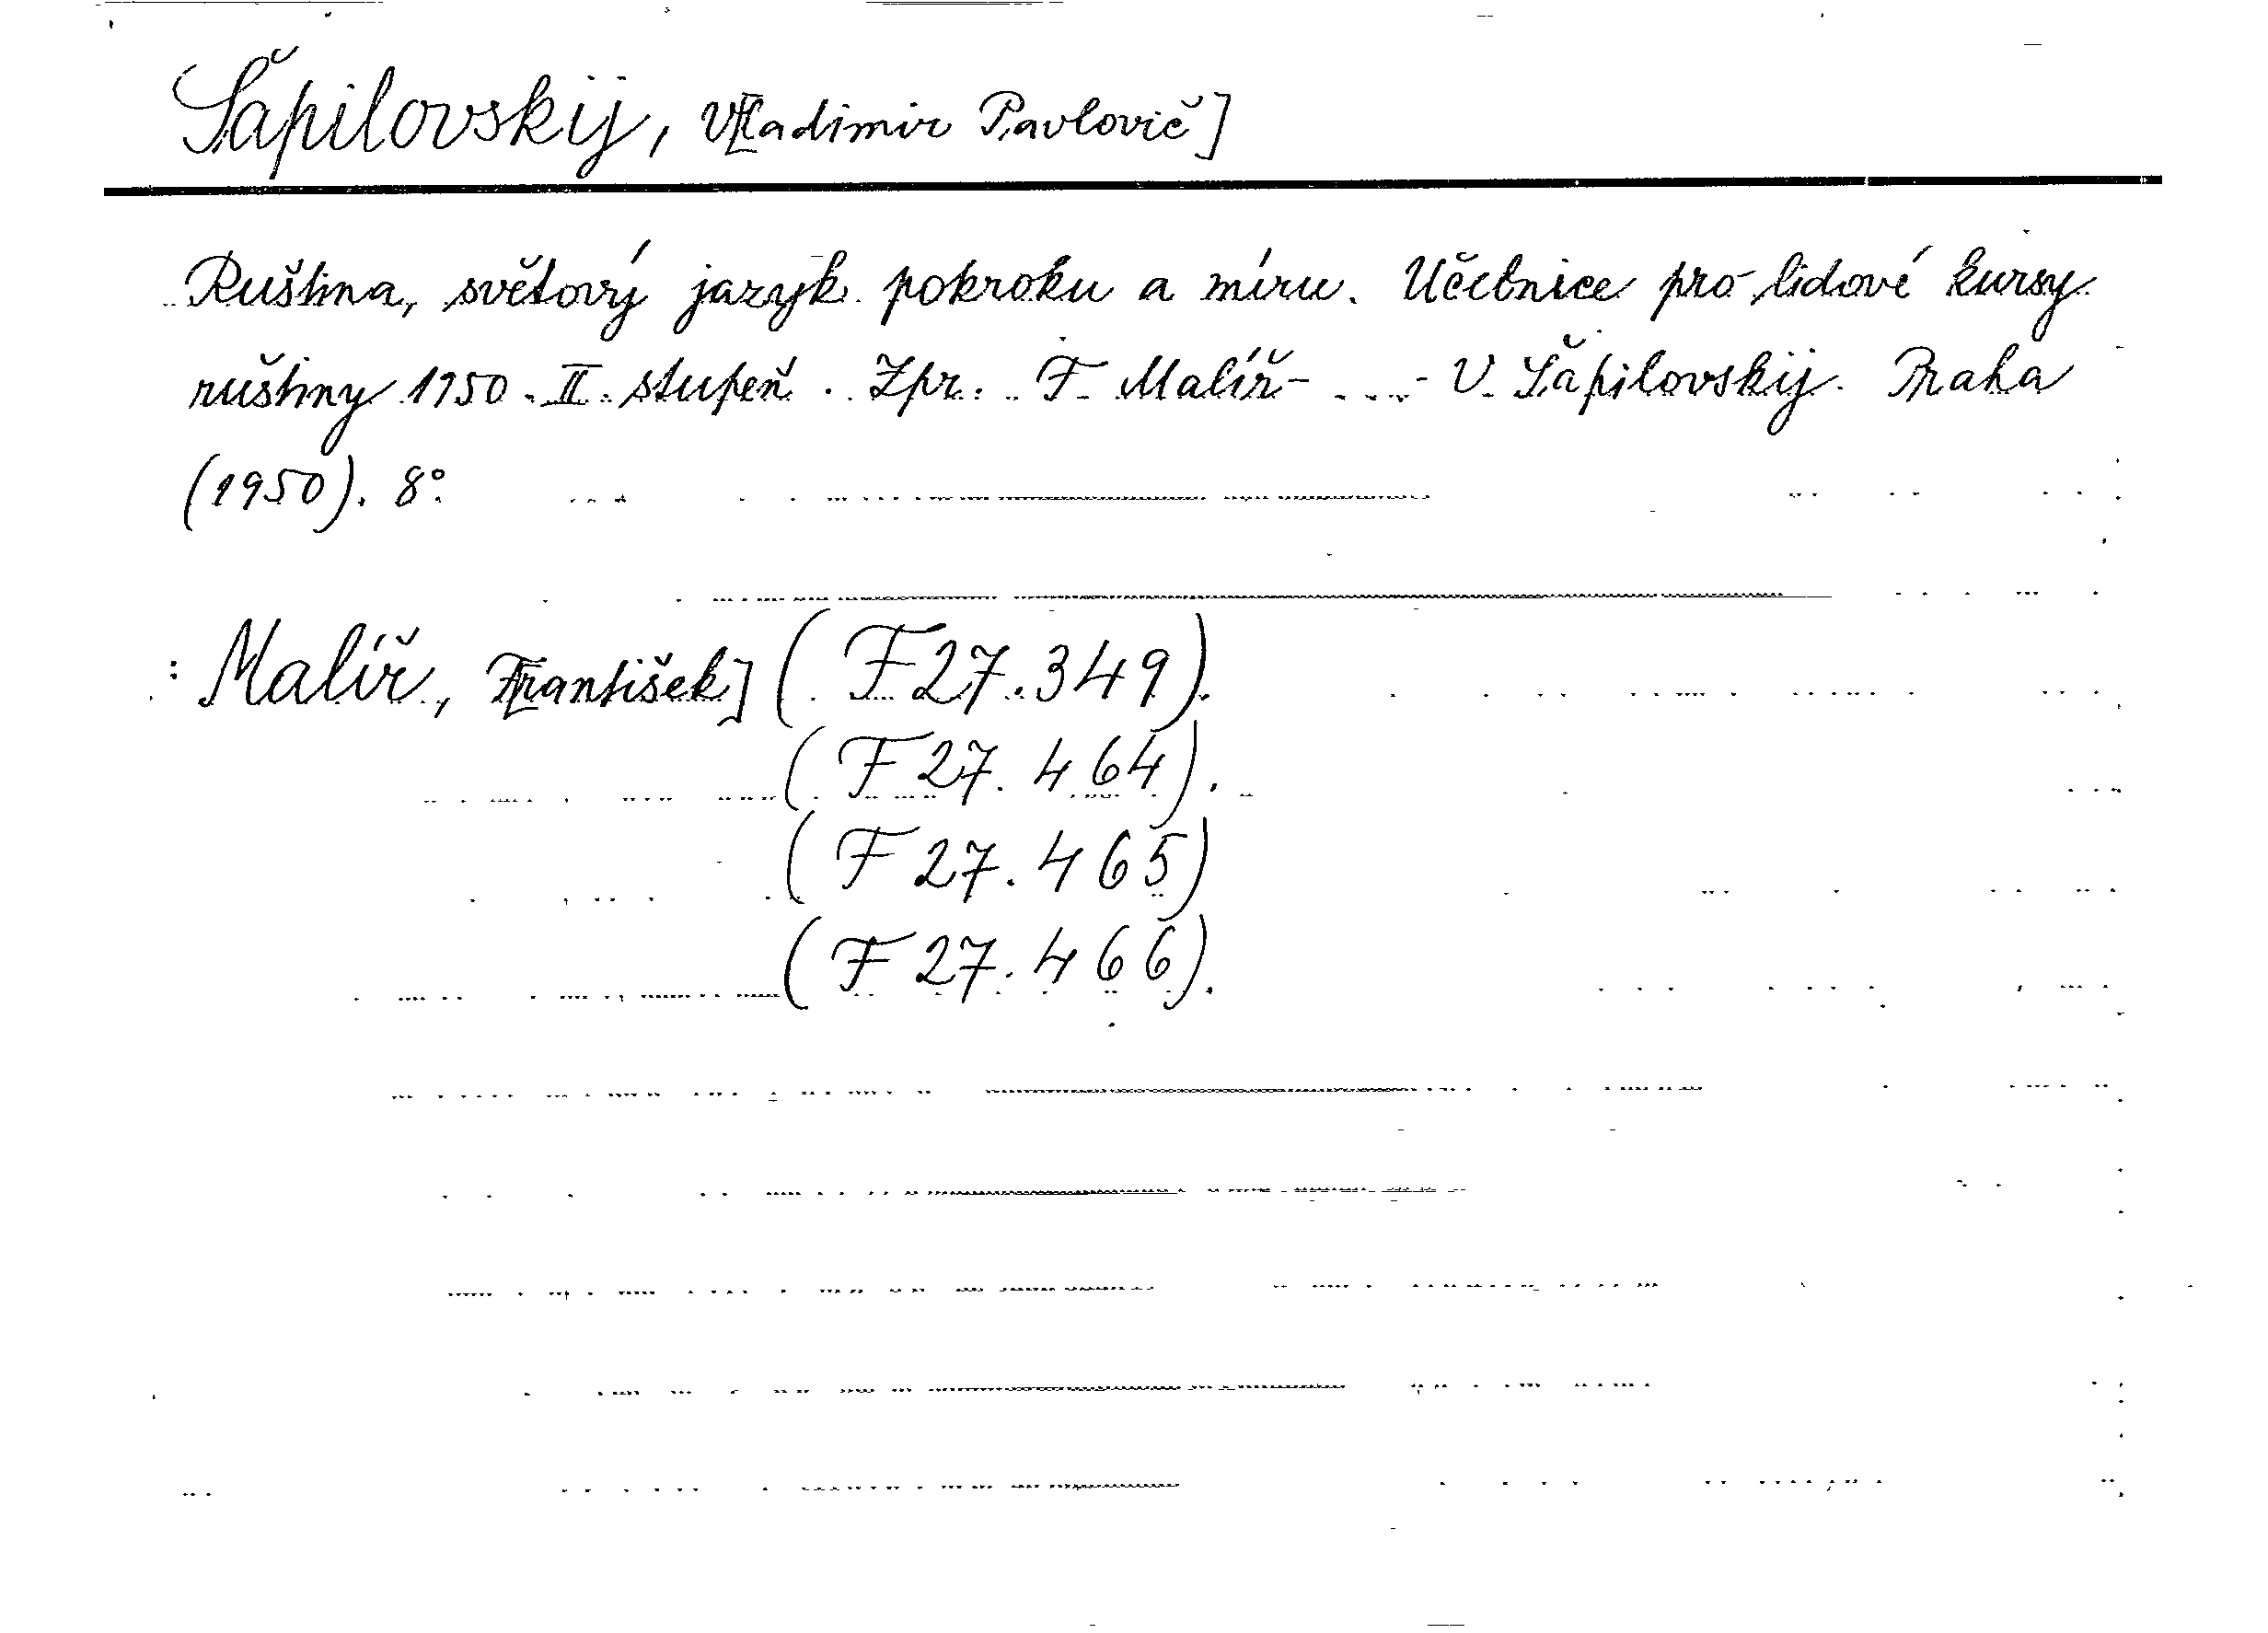 Šapilovskij, V[ladimir Pavlovič]
Ruština, světový jazyk pokroku a míru. Učebnice pro lidové kursy
ruštiny 1950. II. stupeň. Zpr. F. Malíř - ... - V. Šapilovskij. Praha
(1950). 8°.
: Malíř, F[rantišek] (F 27.349).
(F 27.464).
(F 27.465)
(F 27.466).